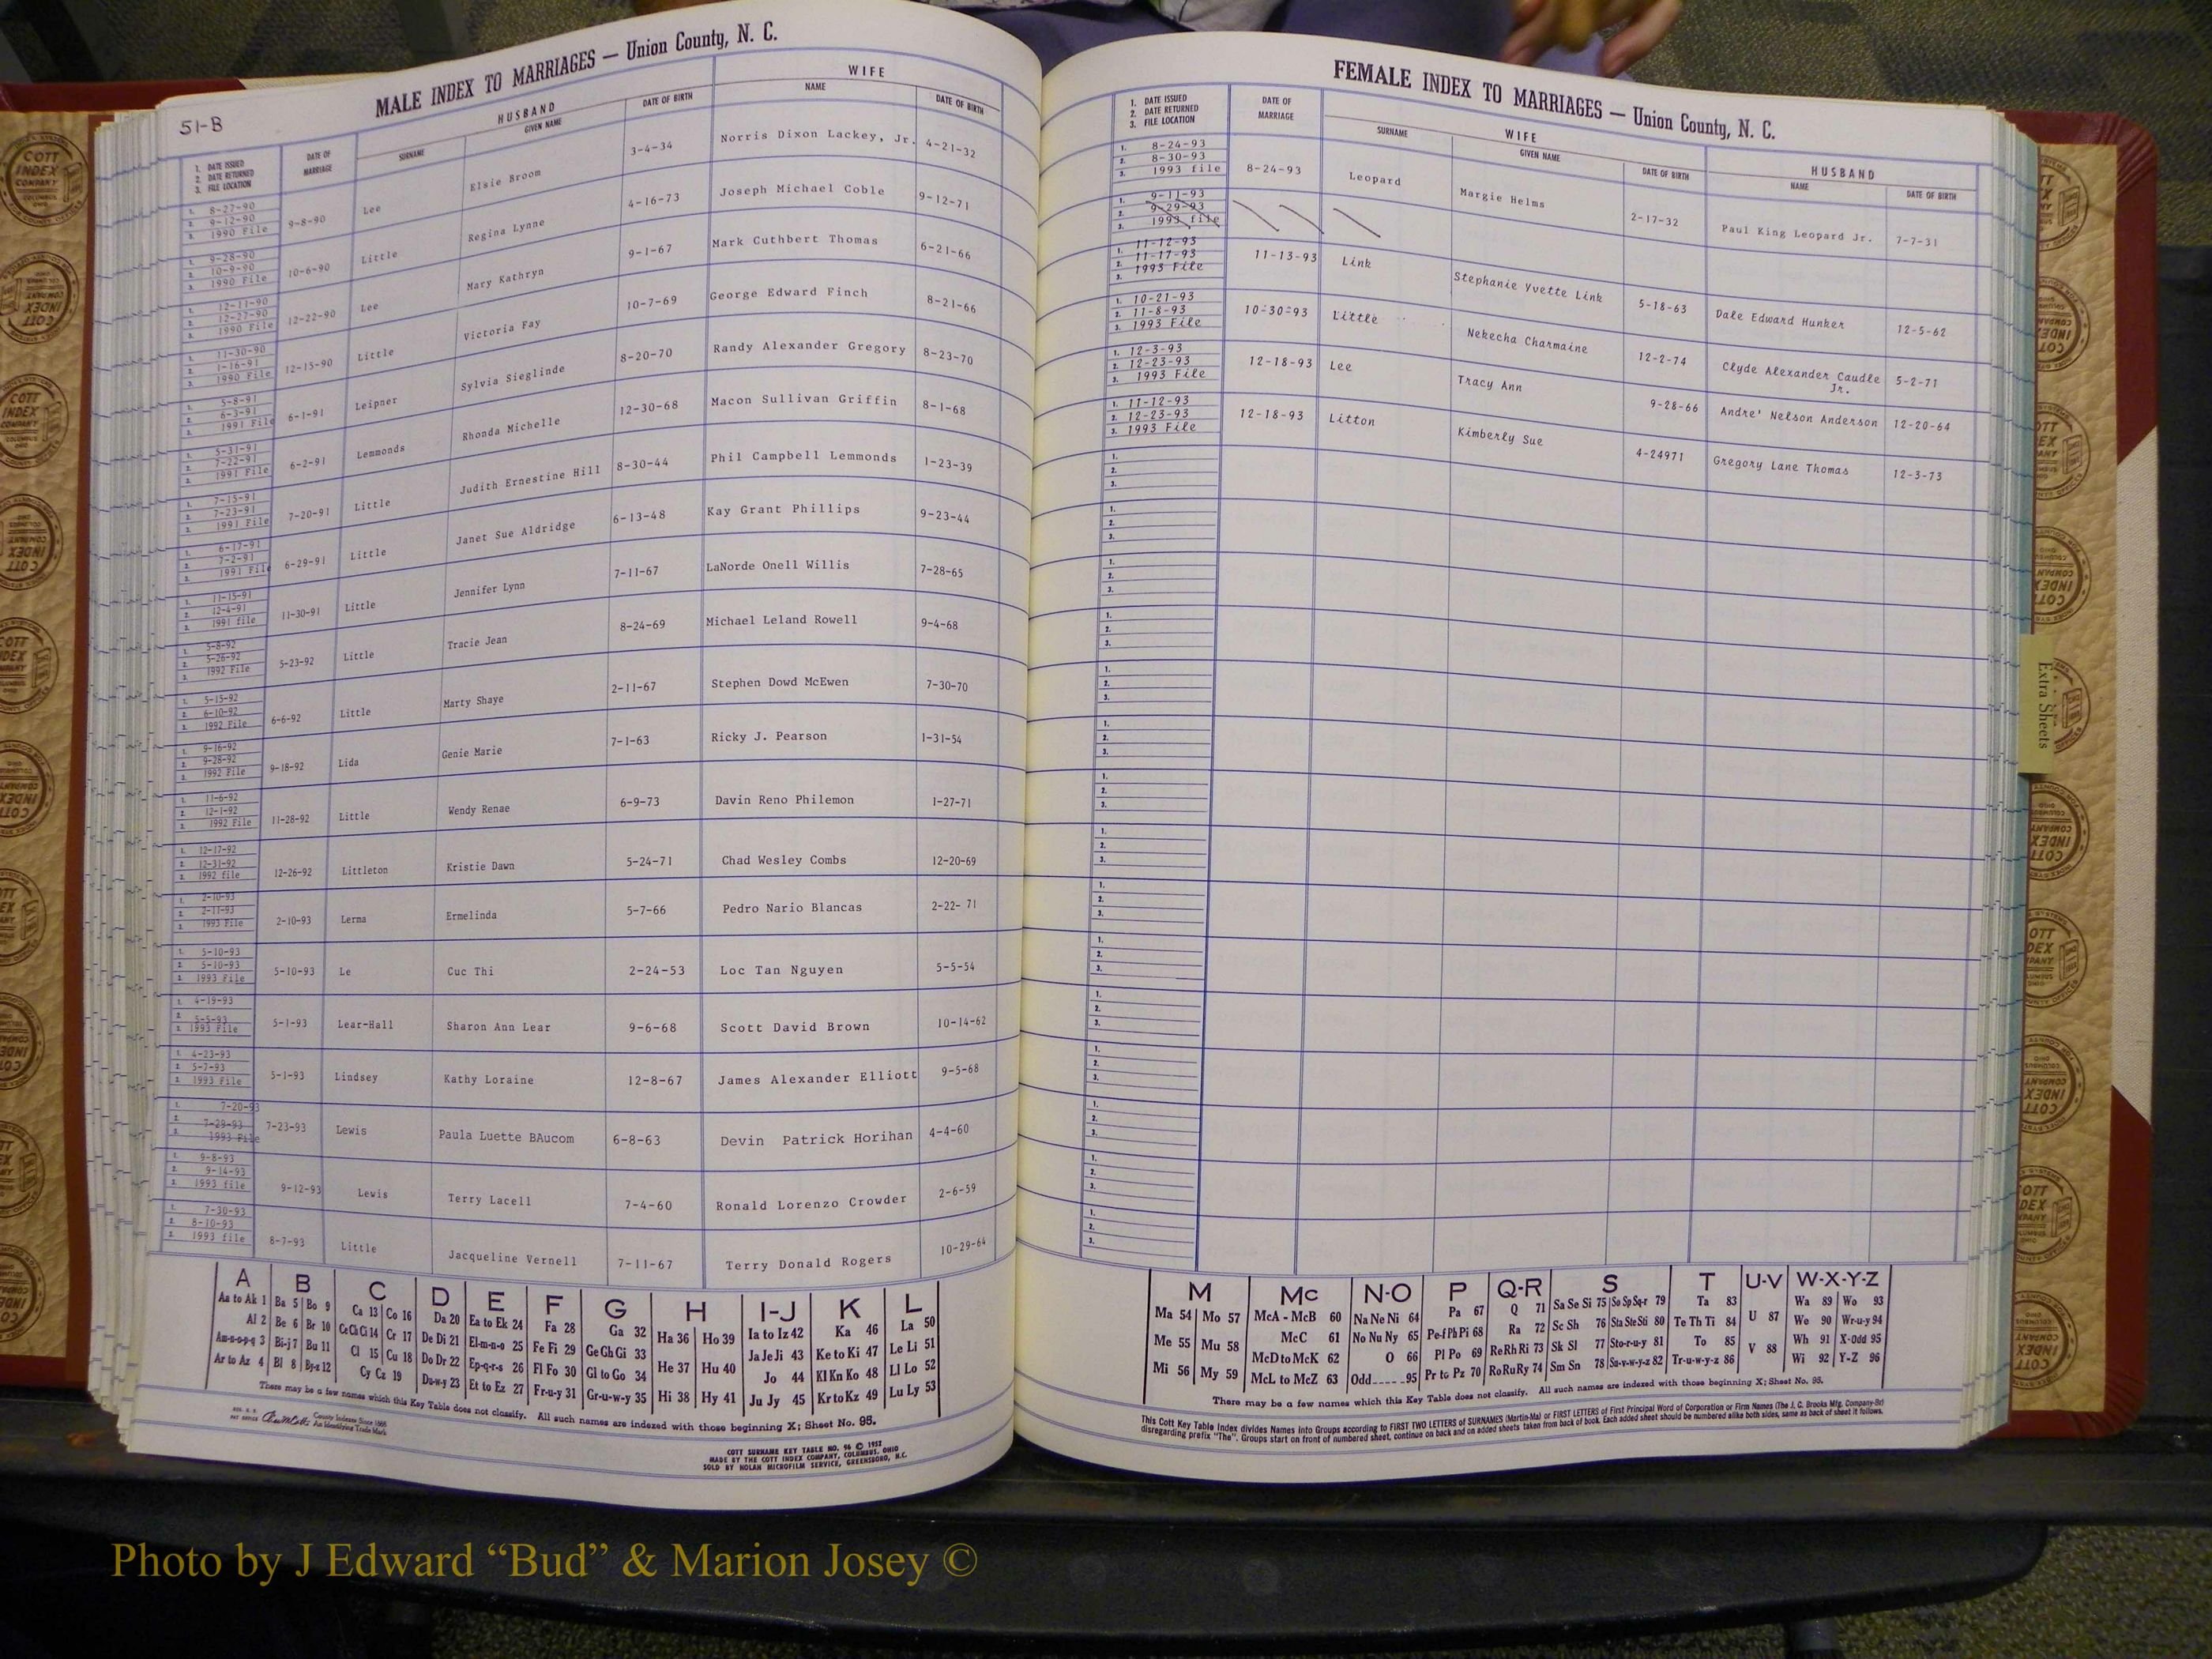 51-B
MALE INDEX TO MARRIAGES — Union County, N. C.
1. DATE ISSUED
2. DATE RETURNED
3. FILE LOCATION
DATE OF MARRIAGE
HUSBAND
SURNAME
GIVEN NAME
DATE OF BIRTH
WIFE
NAME
DATE OF BIRTH
1. 8-27-90
2. 9-12-90
3. 1990 File
9-8-90 Lee Elsie Broom 3-4-34 Norris Dixon Lackey, Jr. 4-21-32
1. 9-28-90
2. 10-9-90
3. 1990 File
10-6-90 Little Regina Lynne 4-16-73 Joseph Michael Coble 9-12-71
1. 12-11-90
2. 12-27-90
3. 1990 File
12-22-90 Lee Mary Kathryn 9-1-67 Mark Cuthbert Thomas 6-21-66
1. 11-30-90
2. 1-16-91
3. 1990 File
12-15-90 Little Victoria Fay 10-7-69 George Edward Finch 8-21-66
1. 5-8-91
2. 6-3-91
3. 1991 File
6-1-91 Leipner Sylvia Sieglinde 8-20-70 Randy Alexander Gregory 8-23-70
1. 5-31-91
2. 7-22-91
3. 1991 File
6-2-91 Lemmonds Rhonda Michelle 12-30-68 Macon Sullivan Griffin 8-1-68
1. 7-15-91
2. 7-23-91
3. 1991 File
7-20-91 Little Judith Ernestine Hill 8-30-44 Phil Campbell Lemmonds 1-23-39
1. 6-17-91
2. 7-2-91
3. 1991 File
6-29-91 Little Janet Sue Aldridge 6-13-48 Kay Grant Phillips 9-23-44
1. 11-15-91
2. 12-4-91
3. 1991 file
11-30-91 Little Jennifer Lynn 7-11-67 LaNorde Onell Willis 7-28-65
1. 5-8-92
2. 5-26-92
3. 1992 File
5-23-92 Little Tracie Jean 8-24-69 Michael Leland Rowell 9-4-68
1. 5-15-92
2. 6-10-92
3. 1992 File
6-6-92 Little Marty Shaye 2-11-67 Stephen Dowd McEwen 7-30-70
1. 9-16-92
2. 9-28-92
3. 1992 File
9-18-92 Lida Genie Marie 7-1-63 Ricky J. Pearson 1-31-54
1. 11-6-92
2. 12-1-92
3. 1992 File
11-28-92 Little Wendy Renae 6-9-73 Davin Reno Philemon 1-27-71
1. 12-17-92
2. 12-31-92
3. 1992 file
12-26-92 Littleton Kristie Dawn 5-24-71 Chad Wesley Combs 12-20-69
1. 2-10-93
2. 2-11-93
3. 1993 File
2-10-93 Lerma Ermelinda 5-7-66 Pedro Nario Blancas 2-22- 71
1. 5-10-93
2. 5-10-93
3. 1993 File
5-10-93 Le Cuc Thi 2-24-53 Loc Tan Nguyen 5-5-54
1. 4-19-93
2. 5-5-93
3. 1993 File
5-1-93 Lear-Hall Sharon Ann Lear 9-6-68 Scott David Brown 10-14-62
1. 4-23-93
2. 5-7-93
3. 1993 File
5-1-93 Lindsey Kathy Loraine 12-8-67 James Alexander Elliott 9-5-68
1. 7-20-93
2. 7-29-93
3. 1993 File
7-23-93 Lewis Paula Luette BAucom 6-8-63 Devin Patrick Horihan 4-4-60
1. 9-8-93
2. 9-14-93
3. 1993 file
9-12-93 Lewis Terry Lacell 7-4-60 Ronald Lorenzo Crowder 2-6-59
1. 7-30-93
2. 8-10-93
3. 1993 file
8-7-93 Little Jacqueline Vernell 7-11-67 Terry Donald Rogers 10-29-64
A B C D E F G H I-J K L
Aa to Ak 1 Ba 5 Bo 9 Ca 13 Co 16 Da 20 Ea to Ek 24 Fa 28 Ga 32 Ha 36 Ho 39 Ia to Iz 42 Ka 46 La 50
Al 2 Be 6 Br 10 Ce Ch Ci 14 Cr 17 De Di 21 El-m-n-o 25 Fe Fi 29 Ge Gh Gi 33 He 37 Hu 40 Ja Je Ji 43 Ke to Ki 47 Le Li 51
Am-n-o-p-q 3 Bi-j 7 Bu 11 Cl 15 Cu 18 Do Dr 22 Ep-q-r-s 26 Fl Fo 30 Gl to Go 34 Hi 38 Hy 41 Jo 44 Kl Kn Ko 48 Ll Lo 52
Ar to Az 4 Bl 8 By-z 12 Cy Cz 19 Du-w-y 23 Et to Ez 27 Fr-u-y 31 Gr-u-w-y 35 Ju Jy 45 Kr to Kz 49 Lu Ly 53
There may be a few names which this Key Table does not classify. All such names are indexed with those beginning X; Sheet No. 95.
County Indexes Since 1888
An Identifying Trade Mark
COTT SURNAME KEY TABLE NO. 96 © 1952
MADE BY THE COTT INDEX COMPANY, COLUMBUS, OHIO
SOLD BY NOLAN MICROFILM SERVICE, GREENSBORO, N.C.
FEMALE INDEX TO MARRIAGES — Union County, N. C.
1. DATE ISSUED
2. DATE RETURNED
3. FILE LOCATION
DATE OF MARRIAGE
WIFE
SURNAME
GIVEN NAME
DATE OF BIRTH
HUSBAND
NAME
DATE OF BIRTH
1. 8-24-93
2. 8-30-93
3. 1993 file
8-24-93 Leopard Margie Helms 2-17-32 Paul King Leopard Jr. 7-7-31
1. 9-11-93
2. 9-29-93
3. 1993 file
1. 11-12-93
2. 11-17-93
3. 1993 File
11-13-93 Link Stephanie Yvette Link 5-18-63 Dale Edward Hunker 12-5-62
1. 10-21-93
2. 11-8-93
3. 1993 File
10-30-93 Little Nekecha Charmaine 12-2-74 Clyde Alexander Caudle Jr. 5-2-71
1. 12-3-93
2. 12-23-93
3. 1993 File
12-18-93 Lee Tracy Ann 9-28-66 Andre' Nelson Anderson 12-20-64
1. 11-12-93
2. 12-23-93
3. 1993 File
12-18-93 Litton Kimberly Sue 4-24971 Gregory Lane Thomas 12-3-73
M Mc N-O P Q-R S T U-V W-X-Y-Z
Ma 54 Mo 57 McA - McB 60 Na Ne Ni 64 Pa 67 Q 71 Sa Se Si 75 So Sp Sq-r 79 Ta 83 U 87 Wa 89 Wo 93
Me 55 Mu 58 McC 61 No Nu Ny 65 Pe-f Ph Pi 68 Ra 72 Sc Sh 76 Sta Ste Sti 80 Te Th Ti 84 V 88 We 90 Wr-u-y 94
Mi 56 My 59 McD to McK 62 O 66 Pl Po 69 Re Rh Ri 73 Sk Sl 77 Sto-r-u-y 81 To 85 Wh 91 X-Odd 95
McL to McZ 63 Odd 95 Pr to Pz 70 Ro Ru Ry 74 Sm Sn 78 Su-v-w-y-z 82 Tr-u-w-y-z 86 Wi 92 Y-Z 96
There may be a few names which this Key Table does not classify. All such names are indexed with those beginning X; Sheet No. 95.
This Cott Key Table Index divides Names into Groups according to FIRST TWO LETTERS of SURNAMES (Martin-Ma) or FIRST LETTERS of First Principal Word of Corporation or Firm Names (The J. C. Brooks Mfg. Company-Br)
disregarding prefix "The". Groups start on front of numbered sheet, continue on back and on added sheets taken from back of book. Each added sheet should be numbered alike both sides, same as back of sheet it follows.
Extra Sheets
COTT
INDEX
COMPANY
COLUMBUS
OHIO
Photo by J Edward “Bud” & Marion Josey ©